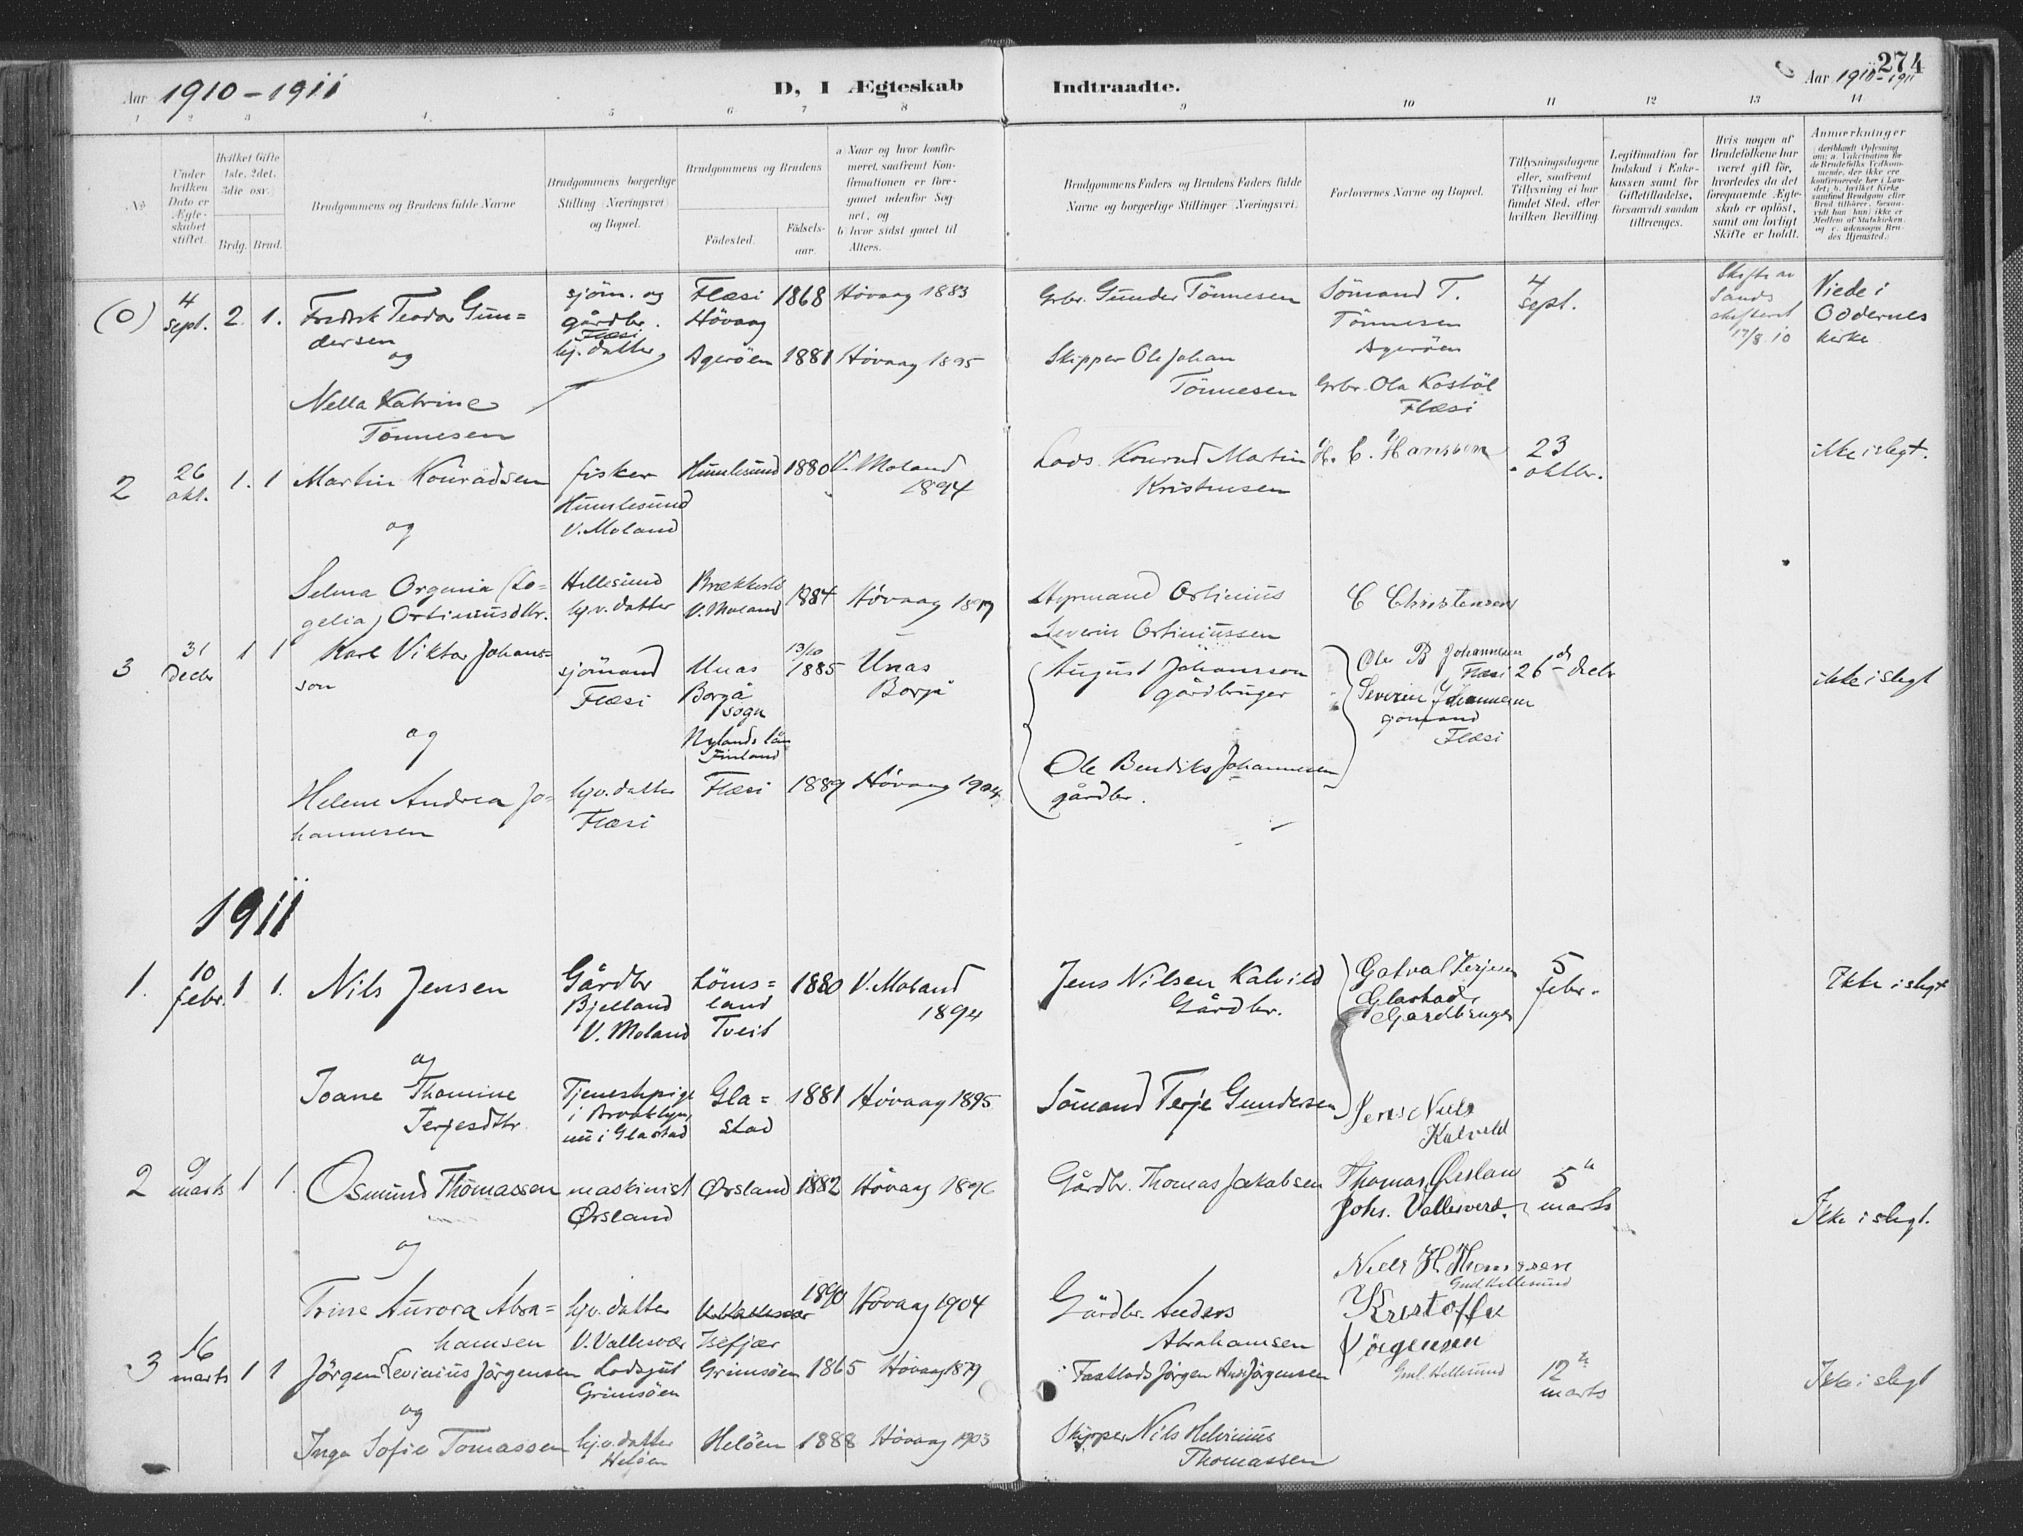 Aar 1910-1911
D, I Ægteskab Indtraadte.
Aar 1910-1911
274
1 2 3 4 5 6 7 8 9 10 11 12 13 14
No
Under hvilken Dato er Ægteskabet stiftet.
Hvilket Gifte 1ste, 2det, 3die osv.
Brdg. Brud.
Brudgommens og Brudens fulde Navne
Brudgommens borgerlige Stilling (Næringsvei) og Bopæl.
Brudgommens og Brudens
Födested.
Födsels-aar.
a Naar og hvor konfirmeret, saafremt Konfirmationen er foregaaet udenfor Sognet, og
b hvor sidst gaaet til Alters.
Brudgommens Faders og Brudens Faders fulde Navne og borgerlige Stillinger (Næringsvei)
Forlovernes Navne og Bopæl.
Tillysningsdagene eller, saafremt Tillysning ei har fundet Sted, efter hvilken Bevilling
Legitimation for Indskud i Enkekassen samt for Giftetilladelse, forsaavidt saadan tiltrænges.
Hvis nogen af Brudefolkene har været gift för, hvorledes da det foregaaende Ægteskab er oplöst, samt om lovligt Skifte er holdt.
Anmærkninger
(0) 4 sept. 2. 1.
Fredrik Teodor Gundersen
og
Nella Katrine Tönnesen
sjöm. og gårdbr. Flæsi
hj. datter
Flæsi Høvaag 1868 Høvaag 1883
Agerøen 1881 Høvaag 1895
Grbr. Gunder Tönnesen
Skipper Ole Johan Tönnesen
Sömand T. Tönnesen Agerøen
Grbr. Ola Kostöl Flæsi
4 sept.
Skifte av Sands skifteret 17/8 10
Viede i Oddernes kirke
2 26 okt. 1. 1
Martin Konradsen
og
Selma Orgenia (Logelia) Ortiniusdtr.
fisker Humlesund V. Moland
Hellesund hjv. datter
Humlesund 1880 V. Moland 1894
V. Moland 1884 Høvaag
Lods Konrad Martin Kristensen
Styrmand Ortinius Severin Ortiniussen
H. C. Hanssen
C Christensen
23 oktbr.
ikke i slegt.
3 31 Decbr 1 1
Karl Viktor Johansson
og
Helene Andrea Johannesen
sjömand Flæsi
hjv. datter Flæsi
Unas Borgå sogn Nylands län Finland
13/10 1885 Unas Borgå
Flæsi 1889 Høvaag 1904
August Johansson gårdbruger
Ole Bendiks Johannesen gårdbr.
Ole B Johannesen Flæsi
Severin Johannesen Flæsi
26 decbr
ikke i slegt
1911
1. 10 febr. 1 1.
Nils Jensen
og
Joane Thomine Terjesdtr
Gårdbr Bjelland V. Moland
Tjenestepige i Brooklyn, nu i Glastad
Lömsland Tveit 1880 V. Moland 1894
Glastad 1881 Høvaag 1895
Jens Nilsen Kalvild Gårdbr.
Sömand Terje Gundersen
Terjesen Glastad, Gardbruger
Jens Niels Kalvild
5 febr.
Ikke i slegt
2 9 marts 1 1.
Osmund Thomassen
og
Trine Aurora Abrahamsen
maskinist Ørsland
hjv. datter V. Vallesvær
Ørsland 1882 Høvaag 1896
Isefjær 1890 Høvaag 1904
Gårdbr. Thomas Jakobsen
Gårdbr. Anders Abrahamsen
Thomas Ørslan
Johs. Vallesverd.
5 marts
Ikke i slegt.
3 16 marts 1 1
Jörgen Levinius Jörgensen
og
Inga Sofie Tomassen
Lodsgut Grimsöen
hjv. datter Helöen
Grimsöen 1865 Høvaag 1879
Helöen 1888 Høvaag 1903
Fastlods Jörgen Jörgensen
Skipper Nils Helvinius Thomassen
Niels H Thomassen Gml Hellesund
Kristoffer Jørgensen Gml. Hellesund
12 marts
Ikke i slegt